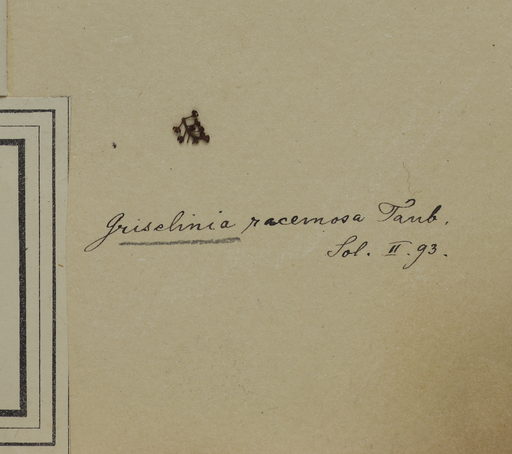 Griselinia racemosa Taub.
Sol. II. 93.